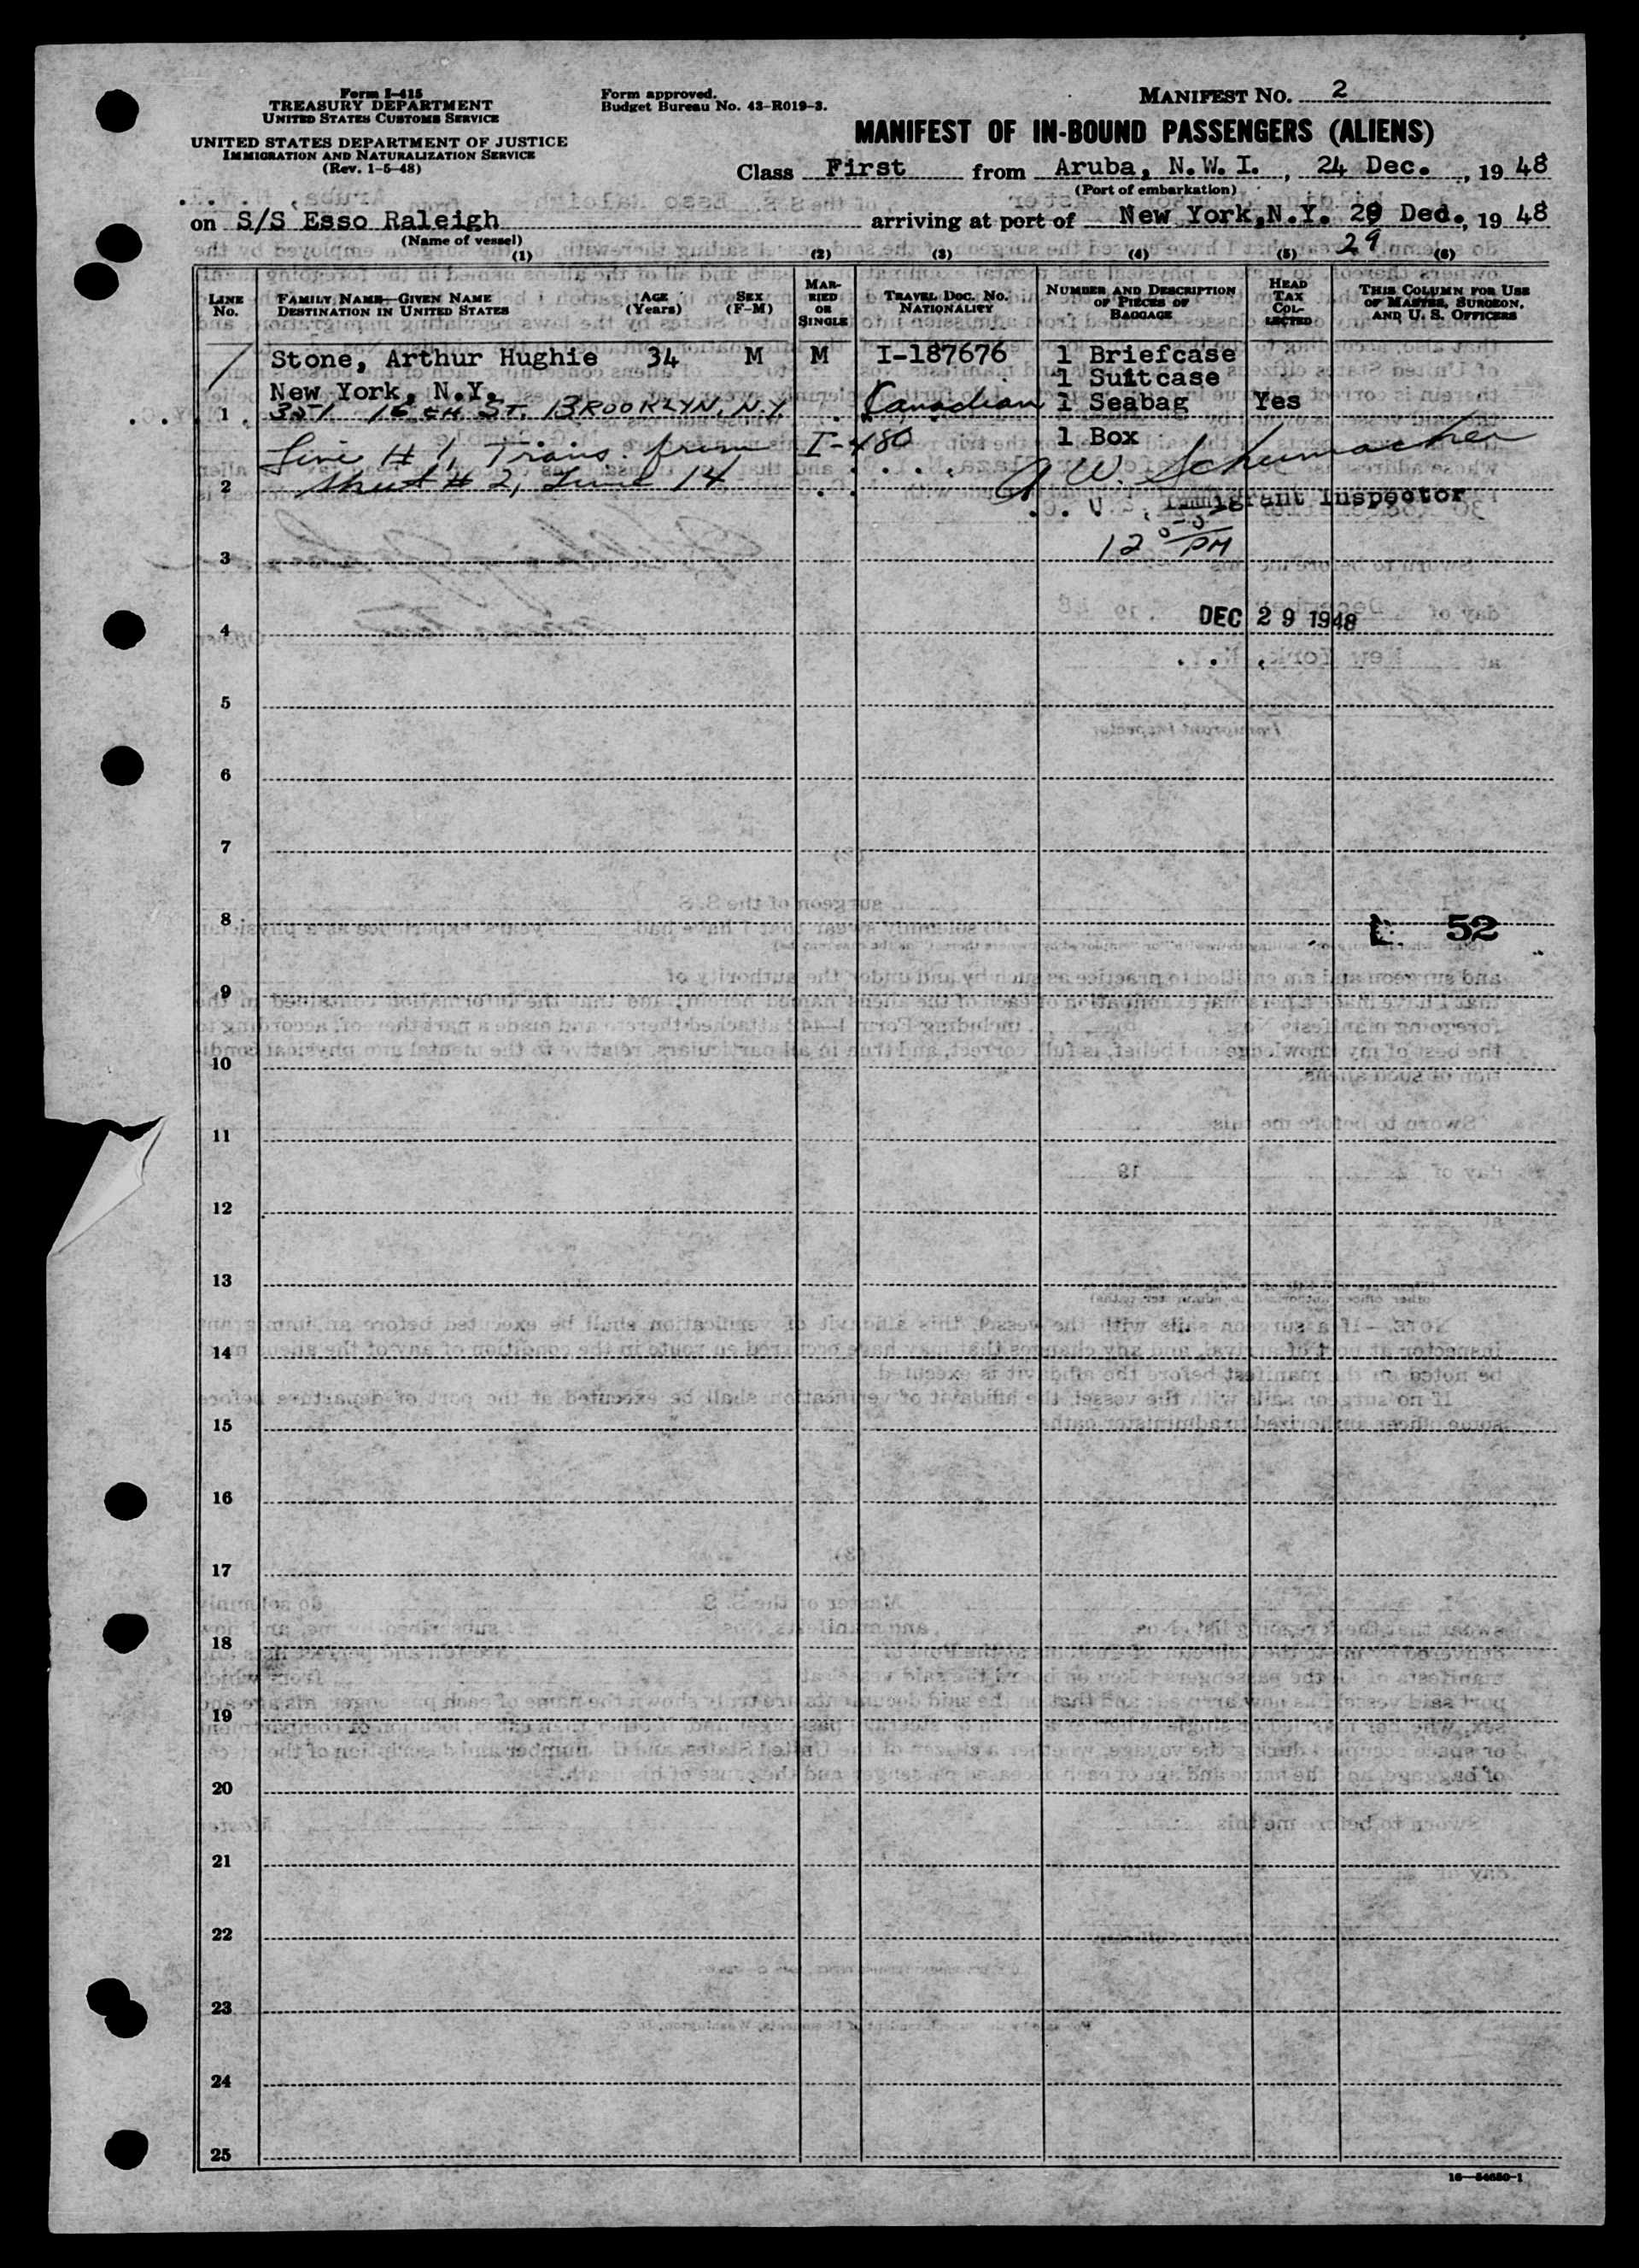 Form I-415
TREASURY DEPARTMENT
UNITED STATES CUSTOMS SERVICE
UNITED STATES DEPARTMENT OF JUSTICE
IMMIGRATION AND NATURALIZATION SERVICE
(Rev. 1-5-48)
Form approved.
Budget Bureau No. 43-R019-3.
MANIFEST NO. 2
MANIFEST OF IN-BOUND PASSENGERS (ALIENS)
Class First from Aruba, N.W.I., 24 Dec., 1948
(Port of embarkation)
on S/S Esso Raleigh arriving at port of New York, N.Y. 29 Ded., 1948
(Name of vessel)
29
(1) (2) (3) (4) (5) (6)
LINE No.
FAMILY NAME—GIVEN NAME
DESTINATION IN UNITED STATES
AGE (Years)
SEX (F-M)
MARRIED OR SINGLE
TRAVEL DOC. NO.
NATIONALITY
NUMBER AND DESCRIPTION OF PIECES OF BAGGAGE
HEAD TAX COLLECTED
THIS COLUMN FOR USE OF MASTER, SURGEON, AND U. S. OFFICERS
Stone, Arthur Hughie 34 M M I-187676 1 Briefcase
New York, N.Y. 1 Suitcase
1 351 16 EH ST. BROOKLYN, N.Y. Canadian 1 Seabag Yes
1 Box
Line # 1, Trans. from I-480
2 sheet # 2, Line 14
W. Schumacher
Immigrant Inspector
12 PM
3
4
DEC 29 1948
5
6
7
8
52
9
10
11
12
13
14
15
16
17
18
19
20
21
22
23
24
25
16—54650-1